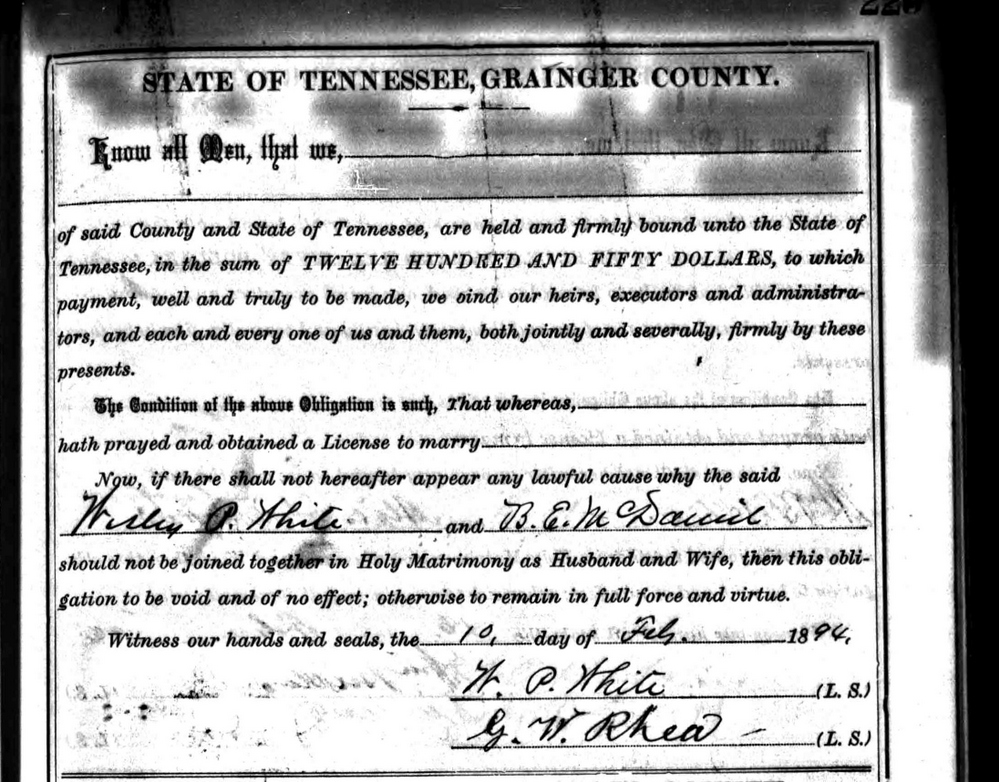 STATE OF TENNESSEE, GRAINGER COUNTY.
Know all Men, that we,
of said County and State of Tennessee, are held and firmly bound unto the State of
Tennessee, in the sum of TWELVE HUNDRED AND FIFTY DOLLARS, to which
payment, well and truly to be made, we bind our heirs, executors and administra-
tors, and each and every one of us and them, both jointly and severally, firmly by these
presents.
The Condition of the above Obligation is such, That whereas,
hath prayed and obtained a License to marry
Now, if there shall not hereafter appear any lawful cause why the said
Wesley P. White and B. E. McDaniel
should not be joined together in Holy Matrimony as Husband and Wife, then this obli-
gation to be void and of no effect; otherwise to remain in full force and virtue.
Witness our hands and seals, the 10, day of Feb. 1894,
W. P. White (L. S.)
G. W. Rhea (L. S.)